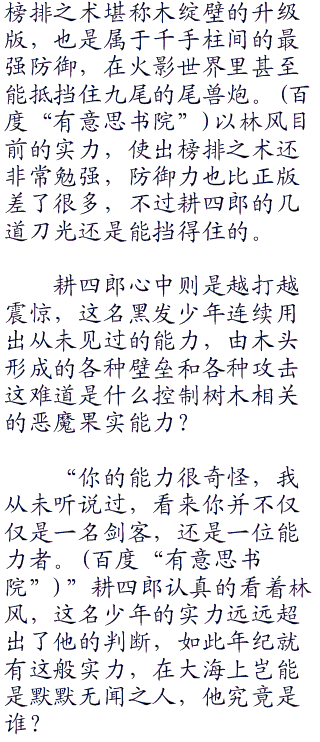 榜排之术堪称木绽壁的升级
版，也是属于千手柱间的最
强防御，在火影世界里甚至
能抵挡住九尾的尾兽炮。(百
度“有意思书院”)以林风目
前的实力，使出榜排之术还
非常勉强，防御力也比正版
差了很多，不过耕四郎的几
道刀光还是能挡得住的。
耕四郎心中则是越打越
震惊，这名黑发少年连续用
出从未见过的能力，由木头
形成的各种壁垒和各种攻击
这难道是什么控制树木相关
的恶魔果实能力？
“你的能力很奇怪，我
从未听说过，看来你并不仅
仅是一名剑客，还是一位能
力者。(百度“有意思书
院”)”耕四郎认真的看着林
风，这名少年的实力远远超
出了他的判断，如此年纪就
有这般实力，在大海上岂能
是默默无闻之人，他究竟是
谁？